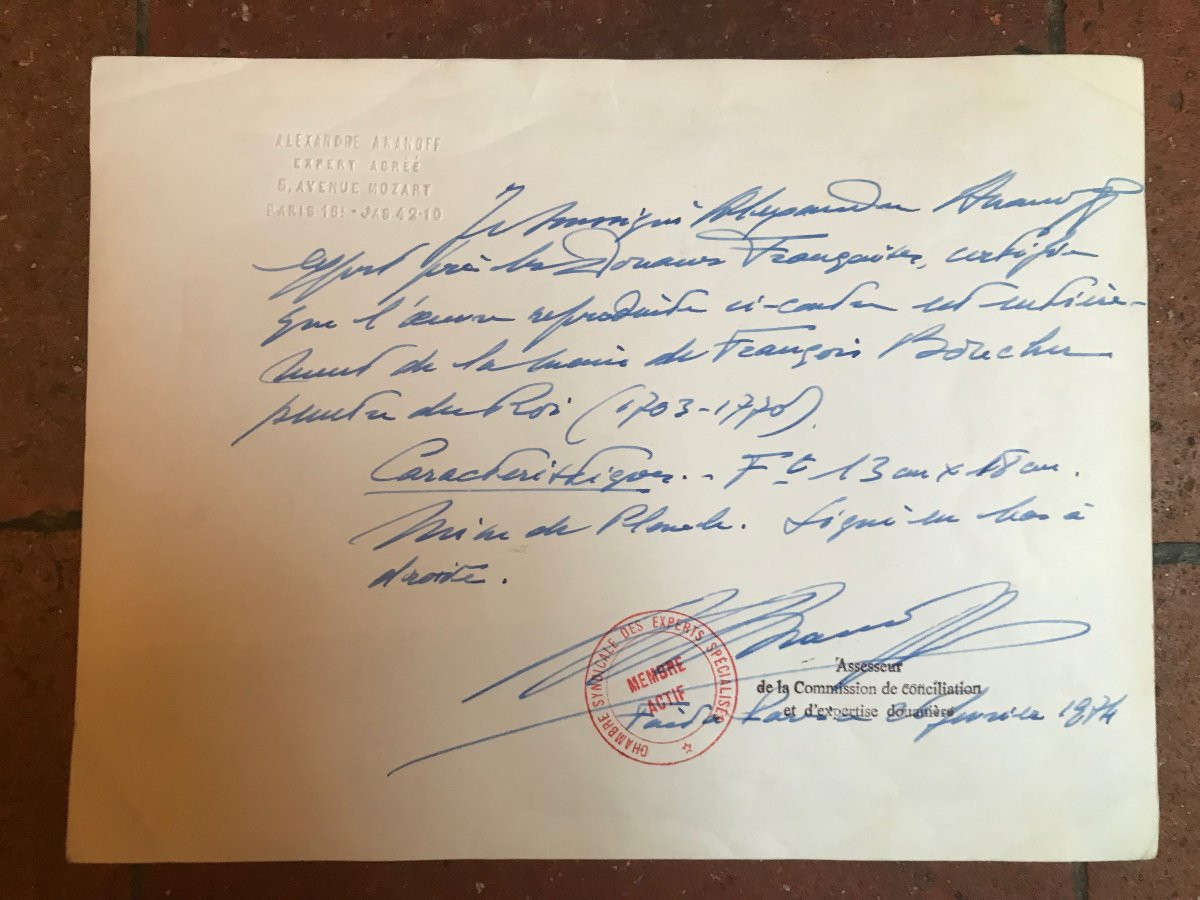 ALEXANDRE ANANOFF
EXPERT AGRÉÉ
5, AVENUE MOZART
PARIS-16ᵉ - JAS 42-10
Je soussigné Alexandre Ananoff
expert près les Douanes Françaises, certifie
que l'œuvre reproduite ci-contre est entière-
ment de la main de François Boucher
peintre du Roi (1703-1770)
Caractéristiques. - Fᵗ 13 cm x 18 cm.
Mine de Plomb. Signé en bas à
droite.
Ananoff
CHAMBRE SYNDICALE DES EXPERTS SPÉCIALISÉS
MEMBRE
ACTIF
Assesseur
de la Commission de conciliation
et d'expertise douanière
Paris 1974